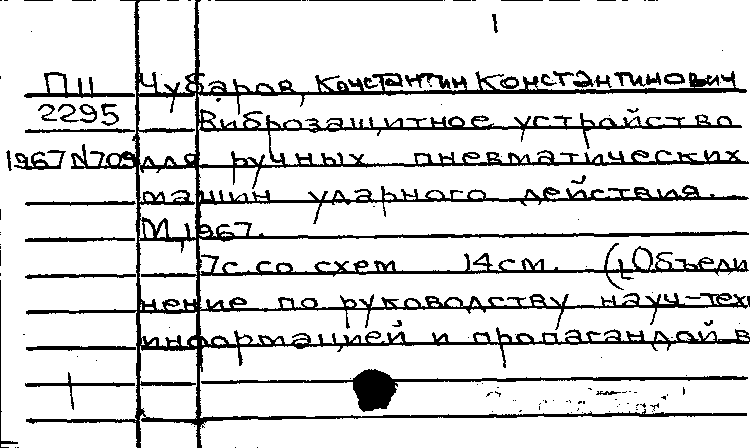 1
П11 Чубаров, Константин Константинович
2295 Виброзащитное устройство
1967 N709 для ручных пневматических
машин ударного действия.
М, 1967.
7с. со схем 14 см. (Объеди
нение по руководству науч-техн
информацией и пропагандой в